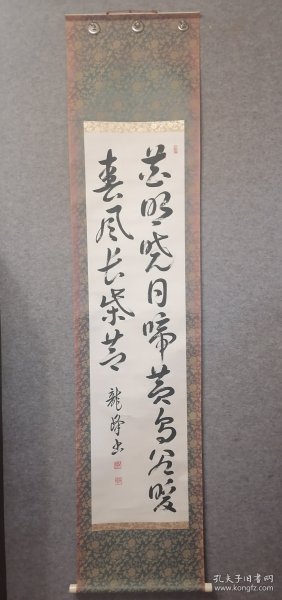 花明晓日啼黄鸟谷暖
春风长紫芝
龍峰書
孔夫子旧书网
www.kongfz.com